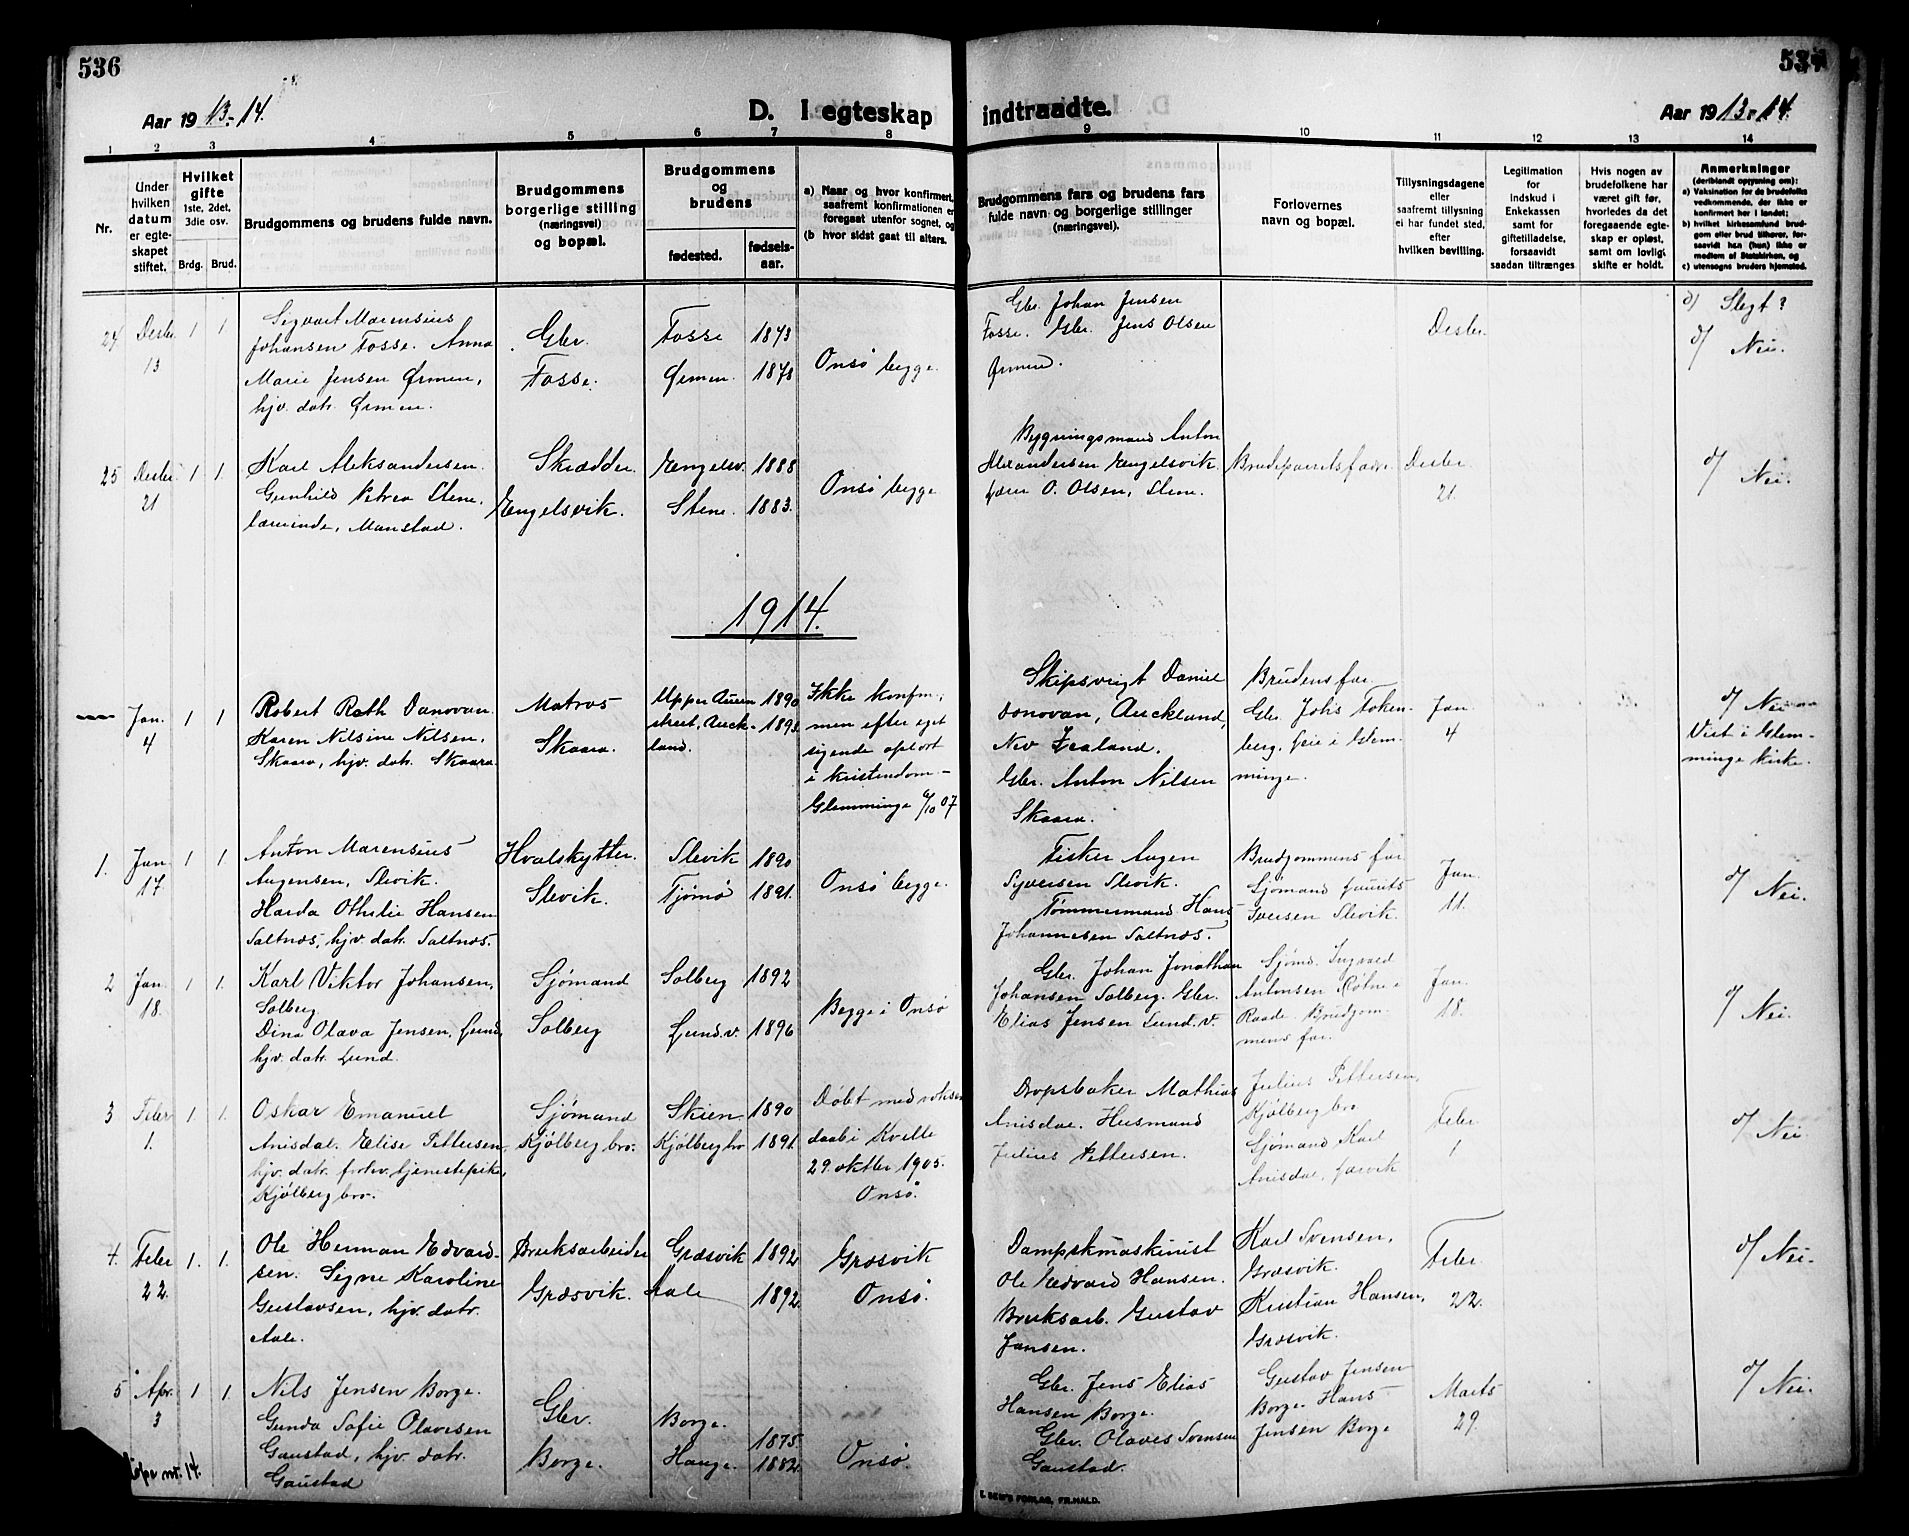 536
537
Aar 1913-14.
D. I egteskap
indtraadte.
Aar 1913-14.
1 2 3 4 5 6 7 8 9 10 11 12 13 14
Nr.
Under hvilken datum er egteskapet stiftet.
Hvilket gifte 1ste, 2det, 3die osv.
Brdg. Brud.
Brudgommens og brudens fulde navn.
Brudgommens borgerlige stilling (næringsvei) og bopæl.
Brudgommens og brudens
fødested.
fødselsaar.
a) Naar og hvor konfirmert, saafremt konfirmationen er foregaat utenfor sognet, og
(b hvor sidst gaat til alters.
Brudgommens fars og brudens fars fulde navn og borgerlige stillinger (næringsvei).
Forlovernes navn og bopæl.
Tillysningsdagene eller saafremt tillysning ei har fundet sted, efter hvilken bevilling.
Legitimation for indskud i Enkekassen samt for giftetilladelse, forsaavidt saadan tiltrænges
Hvis nogen av brudefolkene har været gift før, hvorledes da det foregaaende egteskap er opløst, samt om lovlig skifte er holdt.
Anmerkninger (deriblandt oplysning om):
a) Vaksination for de brudefolks vedkommende, der ikke er konfirmert her i landet;
b) hvilket kirkesamfund brudgom eller brud tilhører, forsaavidt han (hun) ikke er medlem af Statskirken, og
c) utensogns bruders hjemsted.
24 Desbr. 13 1 1.
Sigvart Marensius
Johansen Fosse. Anna
Marie Jensen Ørmen,
hjv. datr. Ørmen.
Gbr.
Fosse.
Fosse 1873
Ørmen. 1878
Onsø begge.
Gbr. Johan Jensen
Fosse. Gbr. Jens Olsen
Ørmen.
Desbr.
d) Slegt?
d/ Nei.
25 Desbr. 21 1 1.
Karl Aleksandersen.
Gunhild Petrea Stene,
Manstad.
Skrædder
Engelsvik.
Engelsv. 1888
Stene. 1883.
Onsø begge
Bygningsmand Anton
Alexandersen Engelsvik.
O. Olsen, Stene.
Desbr.
21.
d/ Nei.
1914.
Jan. 4 1 1
Robert Roth Danovan.
Karen Nilsine Nilsen,
Skaara, hjv. datr. Skaara.
Matros
Skaara.
Upper Queen 1890
street, Auck- 1893
land.
Ikke konfm.,
men efter eget
sigende oplært
i kristendom-
Glemminge 6/10 07
Daniel
Donovan, Auckland,
New Zealand.
Gbr. Anton Nilsen
Skaara.
Brudens far.
Gbr. Johs Foken-
berg, Leie i Glem-
minge.
Jan.
4
d/ Nei
Viet i Glem-
minge kirke.
1. Jan. 17 1 1.
Anton Marensius
Augensen, Slevik.
Harda Othilie Hansen
Saltnæs, hjv. datr. Saltnæs.
Hvalskytter.
Slevik.
Slevik 1890
Tjømø 1891.
Onsø begge.
Fisker Augen
Syversen Slevik.
Tømmermand Hans
Johannesen Saltnæs.
Brudgommens far.
Sjømand Laurits
Iversen Slevik.
Jan.
11.
d/ Nei.
2 Jan. 18. 1 1.
Karl Viktor Johansen,
Solberg.
Dina Olava Jensen, Lund,
hjv. datr. Lund.
Sjømand
Solberg
Solberg 1892
Lund.v. 1896
Begge i Onsø
Gbr. Johan Jonathan
Johansen Solberg. Gbr.
Elias Jensen Lund.v.
Sjøms. Ingvald
Antonsen
Raade. Brudgom-
mens far.
Jan.
18.
d/ Nei.
3 Febr. 1. 1 1.
Oskar Emanuel
Anisdal. Elise Pettersen,
hjv. datr. forhv. tjenestepike,
Kjølberg bro.
Sjømand
Kjølberg bro.
Skien 1890
Kjølberg bro 1891.
Døbt med voksen
daab i Kvelle
29. oktbr 1905.
Onsø.
Dropsbaker Mathias
Anisdal. Husmand
Julius Pettersen.
Julius Pettersen,
Kjølberg bro
Sjømand Karl
Anisdal, Larvik
Febr.
1
d/ Nei.
4. Febr. 22. 1. 1.
Ole Herman Edvard-
sen. Signe Karoline
Gustavsen, hjv. datr.
Aale.
Bruksarbeider
Græsvik.
Græsvik 1892
Aale 1892.
Græsvik
Onsø.
Dampskmaskinist
Ole Edvard Hansen.
Bruksarb. Gustav
Jansen.
Karl Svensen,
Græsvik.
Kristian Hansen,
Græsvik.
Febr.
22.
d/ Nei.
5 Apr. 3 1 1.
Nils Jensen Borge.
Gunda Sofie Olavesen
Gaustad, hjv. datr.
Gaustad
Gbr.
Borge.
Borge. 1875.
Hauge. 1882.
Onsø.
Gbr. Jens Elias
Hansen Borge.
Gbr. Olaves Svensen
Gaustad.
Gustav Jensen
Borge. Hans
Jensen Borge
Marts
29.
d/ Nei.
nr. 14.
E. SEM'S FORLAG, FR.HALD.